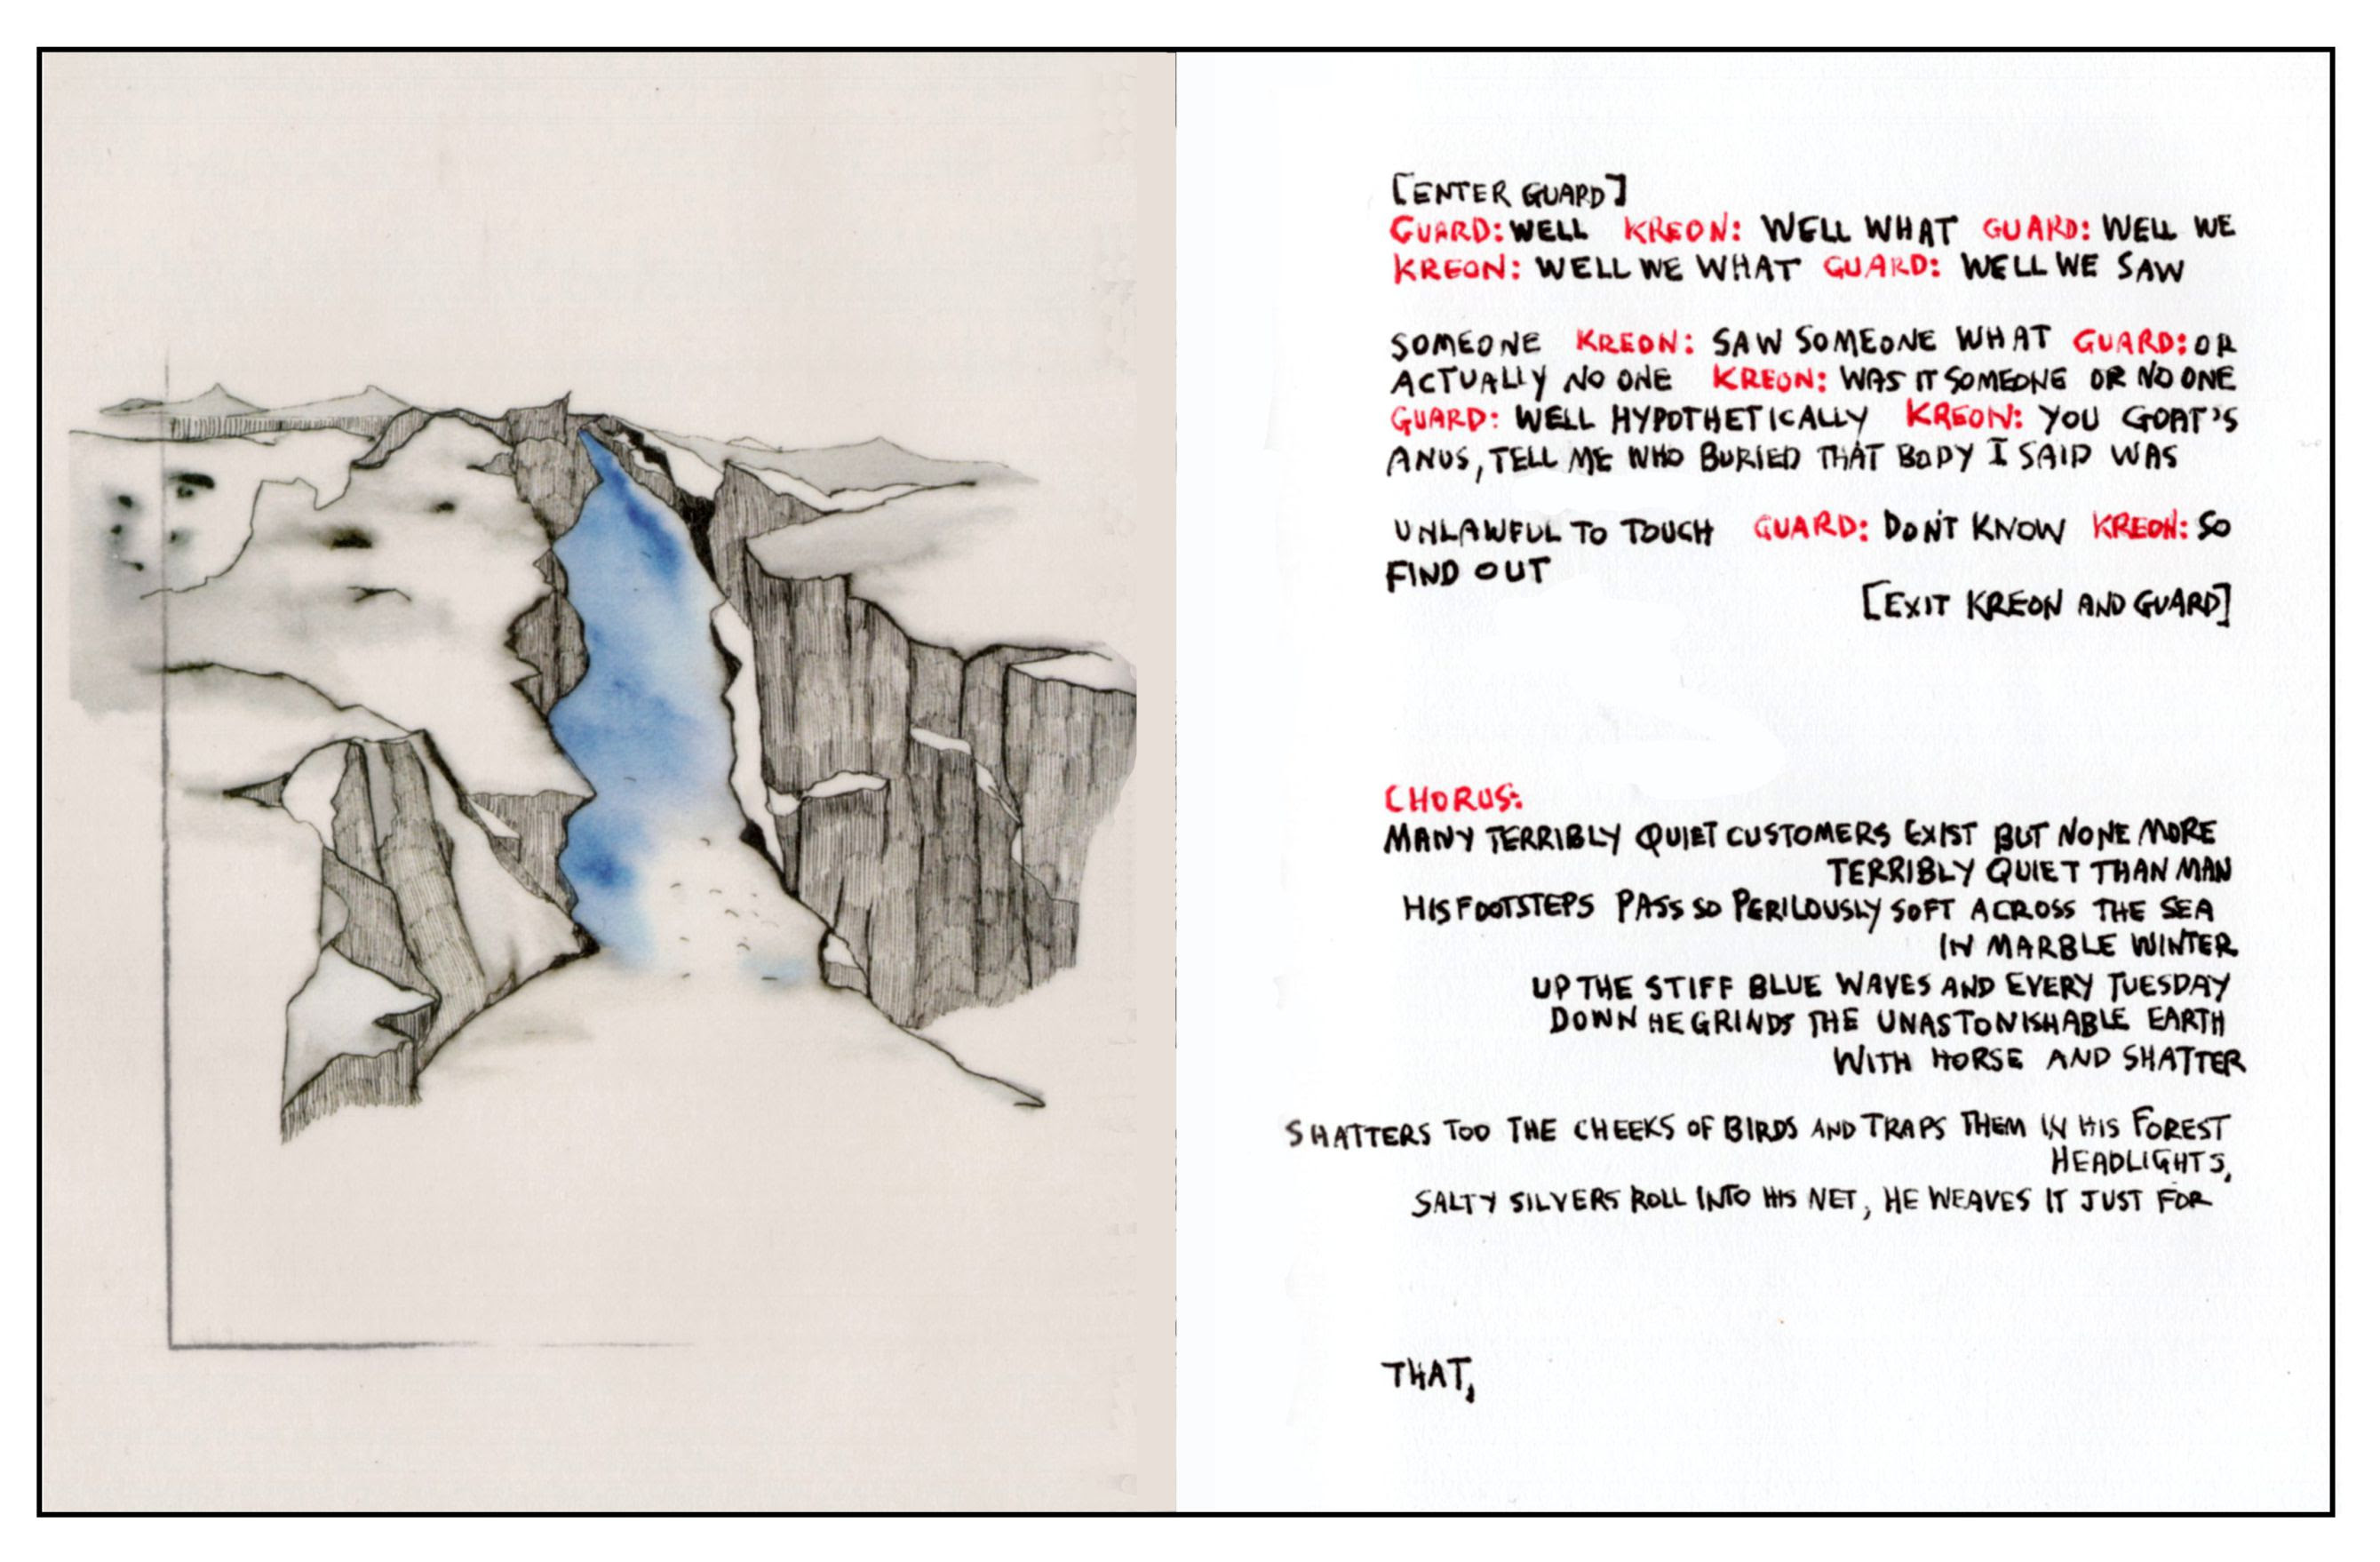 [ENTER GUARD]
GUARD: WELL KREON: WELL WHAT GUARD: WELL WE
KREON: WELL WE WHAT GUARD: WELL WE SAW
SOMEONE KREON: SAW SOMEONE WHAT GUARD: OR
ACTUALLY NO ONE KREON: WAS IT SOMEONE OR NO ONE
GUARD: WELL HYPOTHETICALLY KREON: YOU GOAT'S
ANUS, TELL ME WHO BURIED THAT BODY I SAID WAS
UNLAWFUL TO TOUCH GUARD: DON'T KNOW KREON: SO
FIND OUT
[EXIT KREON AND GUARD]
CHORUS:
MANY TERRIBLY QUIET CUSTOMERS EXIST BUT NONE MORE
TERRIBLY QUIET THAN MAN
HIS FOOTSTEPS PASS SO PERILOUSLY SOFT ACROSS THE SEA
IN MARBLE WINTER
UP THE STIFF BLUE WAVES AND EVERY TUESDAY
DOWN HE GRINDS THE UNASTONISHABLE EARTH
WITH HORSE AND SHATTER
SHATTERS TOO THE CHEEKS OF BIRDS AND TRAPS THEM IN HIS FOREST
HEADLIGHTS,
SALTY SILVERS ROLL INTO HIS NET, HE WEAVES IT JUST FOR
THAT,